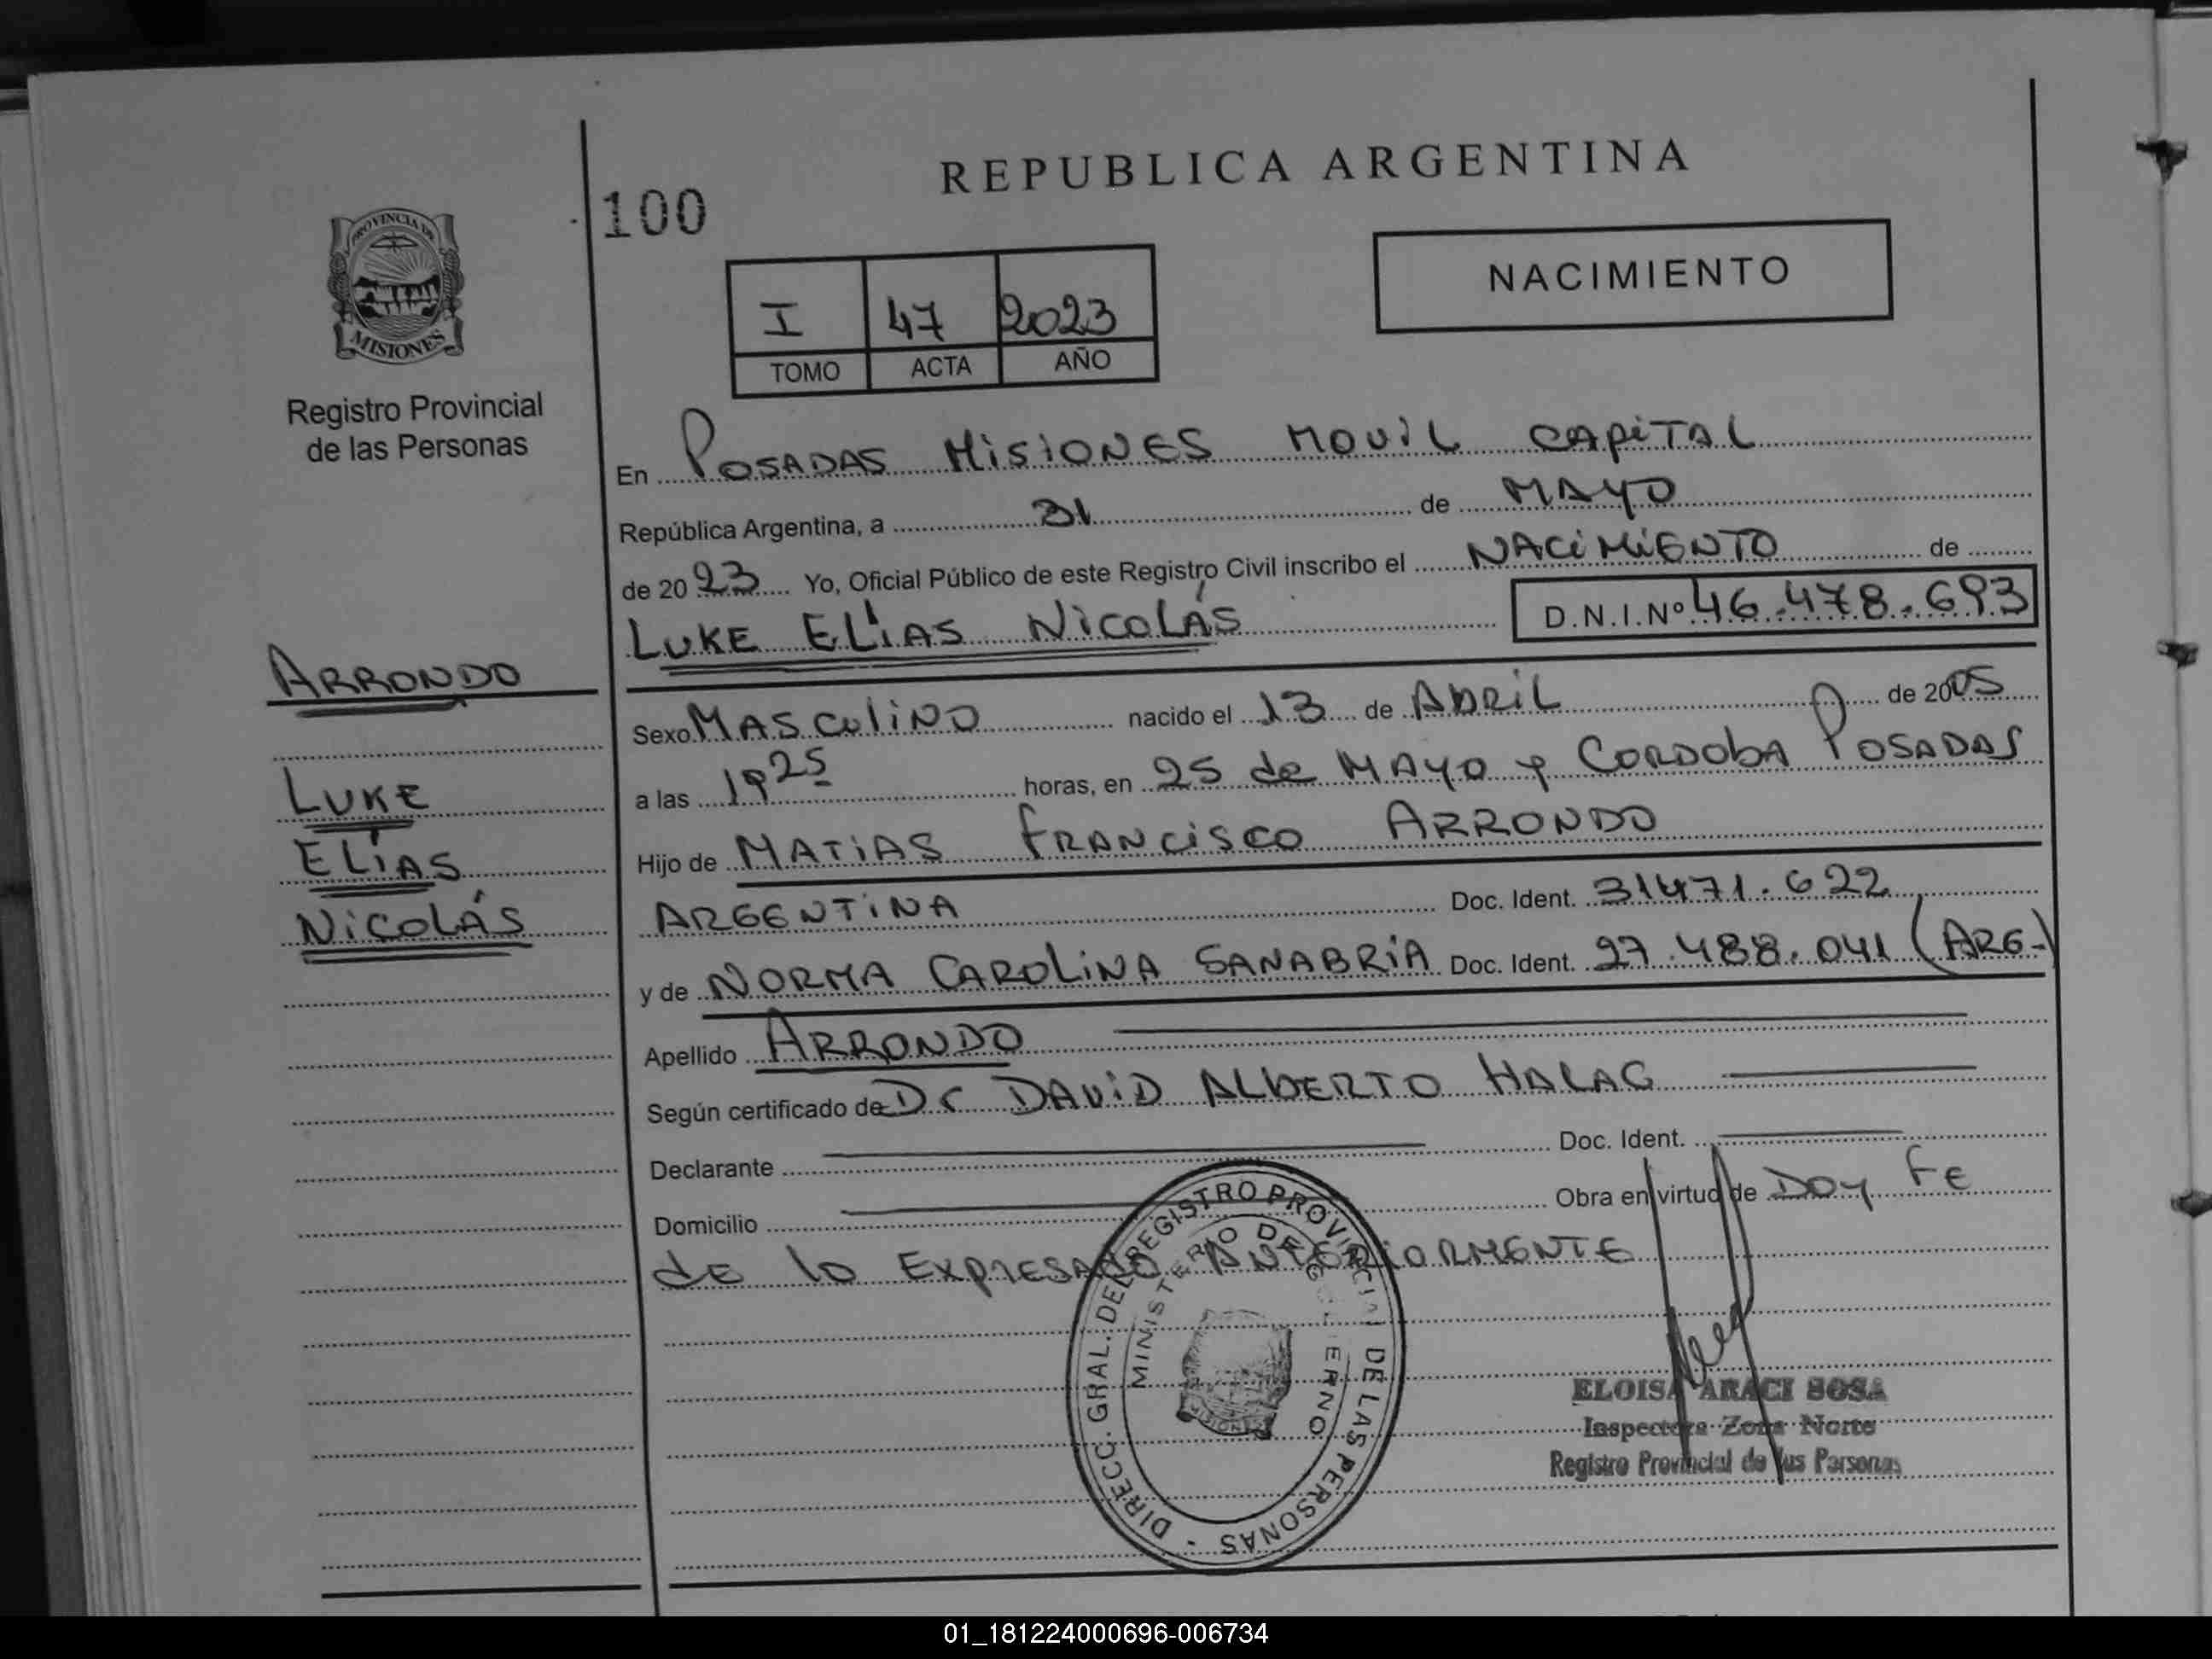 REPUBLICA ARGENTINA
100
NACIMIENTO
I 47 2023
TOMO ACTA AÑO
PROVINCIA DE
MISIONES
Registro Provincial
de las Personas
En Posadas Misiones Movil Capital
República Argentina, a 31 de Mayo
de 2023 Yo, Oficial Público de este Registro Civil inscribo el Nacimiento de
Luke Elías Nicolás D.N.I. Nº 46.478.693
Arrondo
Luke
Elías
Nicolás
Sexo Masculino nacido el 13 de Abril de 2005
a las 19 25 horas, en 25 de Mayo y Cordoba Posadas
Hijo de Matias Francisco Arrondo
Argentina Doc. Ident. 31471.622
y de Norma Carolina Sanabria Doc. Ident. 27.488.041 (Arg.)
Apellido Arrondo
Según certificado de Dr David Alberto Halac
Declarante Doc. Ident.
Domicilio Obra en virtud de Doy Fe
de lo Expresado Anteriormente
DIRECC. GRAL. DEL REGISTRO PROVINCIAL DE LAS PERSONAS
MINISTERIO DE GOBIERNO
ELOISA ARACI SOSA
Inspectora Zona Norte
Registro Provincial de las Personas
01_181224000696-006734